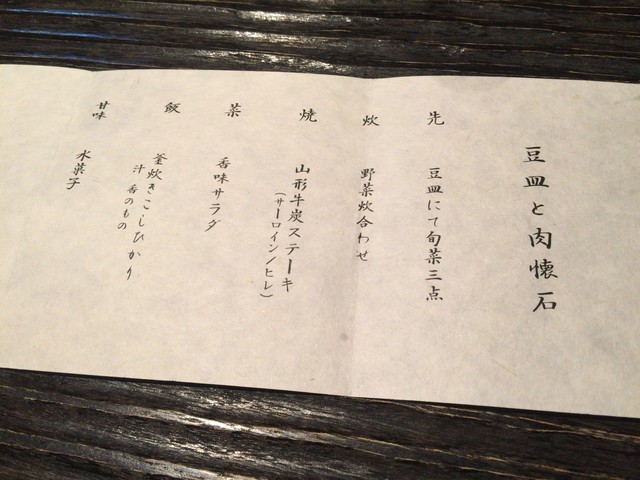 豆皿と肉懐石
先
豆皿にて旬菜三点
炊
野菜炊合わせ
焼
山形牛炭ステーキ
（サーロイン／ヒレ）
菜
香味サラダ
飯
釜炊きこしひかり
汁 香のもの
甘味
水菓子